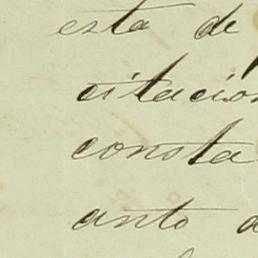 esta de
citacion
consta
anto d